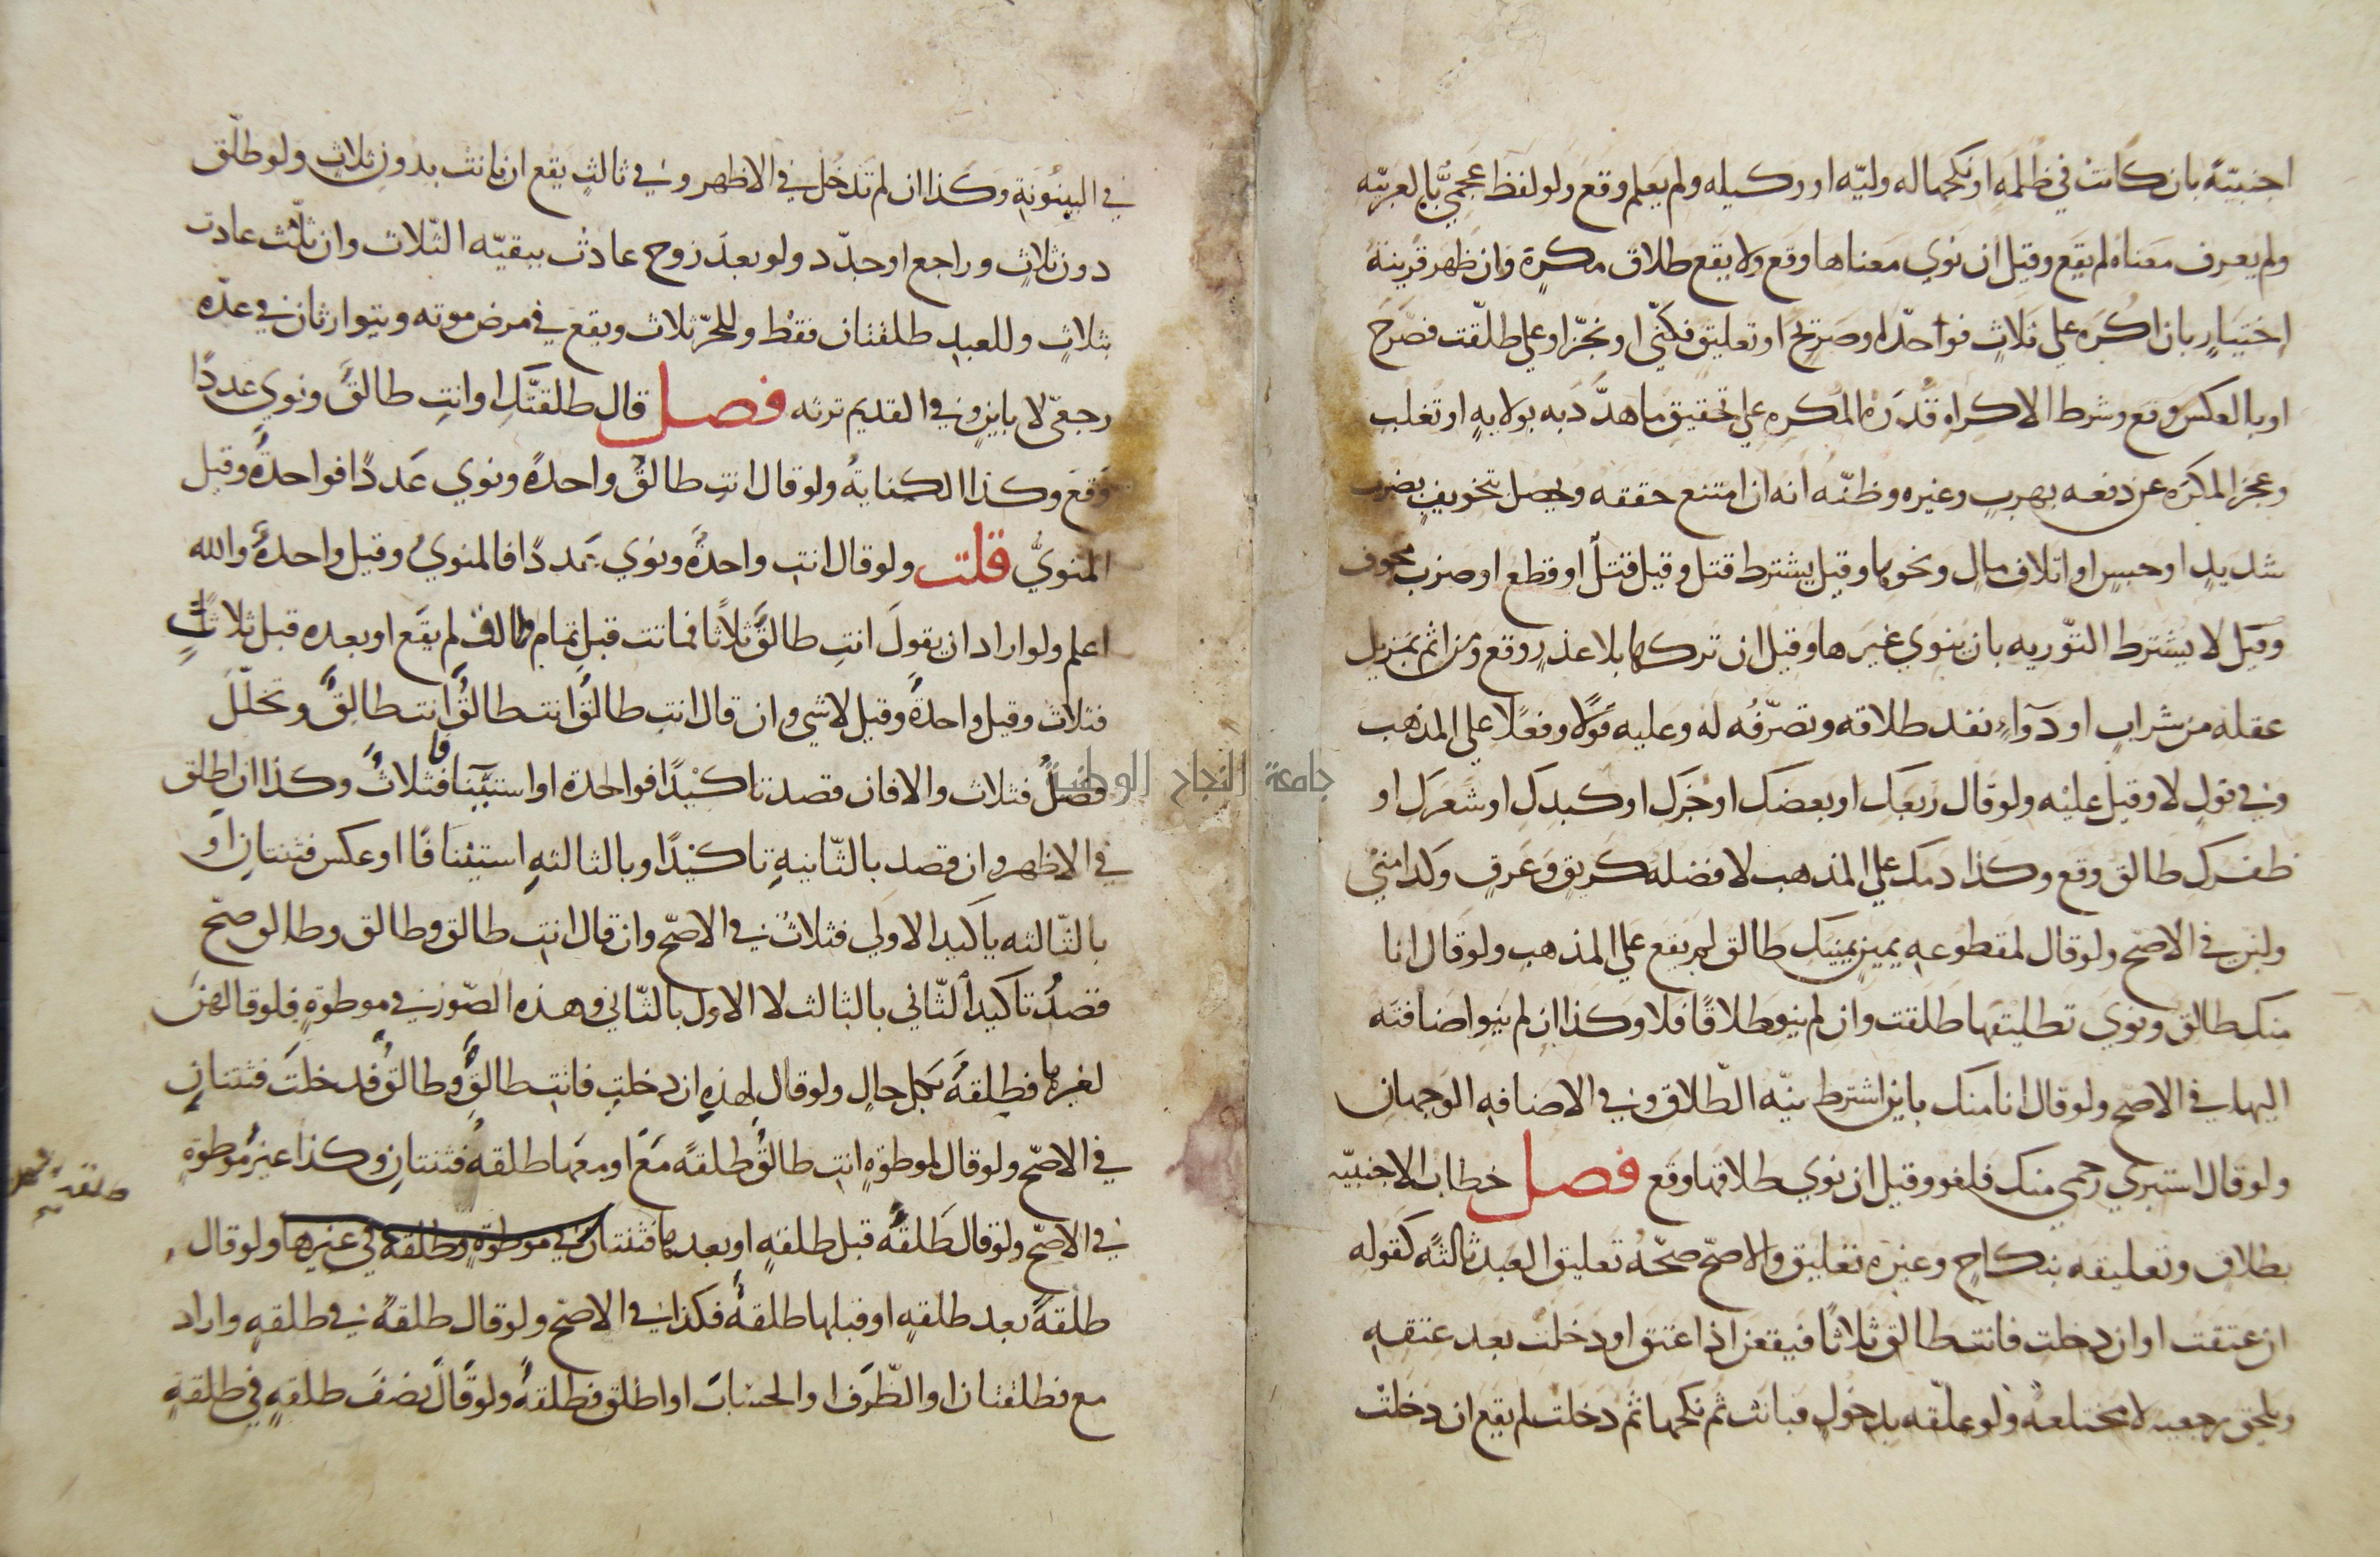 اجنبيّة بان كانت في ظلمه او نكحها له وليّه او وكيله ولم يعلم وقع ولو لفظ عجميٌّ بالعربيّه
ولم يعرف معناه لم يقع وقيل ان نوي معناها وقع ولا يقع طلاق مكرهٍ وان ظهر قرينة
اختيارٍ بان اكره علي ثلاثٍ فواحّد او صريح او تعليق فكنّي او نجّز او علي طلّقت فصرّح
او بالعكس وقع وشرط الاكراه قدرة المكره علي تحقيق ما هدّد به بولايةٍ او تغلب
وعجز المكره عن دفعه بهربٍ وغيره وظنّه انه ان امتنع حققه ويحصل بتخويفٍ بضرب
شديدٍ او حبسٍ او اتلاف مالٍ ونحوها وقيل يشترط قتل وقيل قتل او قطع او ضرب مخوف
وقيل لا يشترط التّوريه بان ينوي غيرها وقيل ان تركها بلا عذرٍ وقع ومن اثم بمزيل
عقله من شرابٍ او دوآءٍ نفذ طلاقه وتصرّفه له وعليه قولا وفعلا علي المذهب
وفي قول لا وقيل عليه ولو قال ربعك او بعضك او جزك او كبدك او شعرك او
ظفرك طالق وقع وكذا دمك علي المذهب لا فضله كريقٍ وعرقٍ وكذا منيّ
ولبن في الاصحّ ولو قال لمقطوعه يمينٍ يمينك طالق لم يقع علي المذهب ولو قال انا
منك طالق ونوي تطليقها طلقت وان لم ينو طلاقًا فلا وكذا ان لم ينو اضافته
اليها في الاصحّ ولو قال انا منك باين اشترط نيّه الطّلاق وفي الاضافه الوجهان
ولو قال استبري رحمي منك فلغو وقيل ان نوي طلاقها وقع فصل خطاب الاجنبيّه
بطلاقٍ وتعليقه بنكاحٍ وغيره تعليق والاصحّ صحّة تعليق العبد ثالثةً كقوله
ان عتقت او ان دخلت فانت طالق ثلاثًا فيقعن اذا عتق او دخلت بعد عتقه
ويلحق رجعيه لا مختلعةً ولو علّقه بدخولٍ فبانت ثم نكحها ثم دخلت لم يقع ان دخلت
في البينونة وكذا ان لم تدخل في الاظهر وفي ثالثٍ يقع ان بانت بدون ثلاث ولو طلّق
دون ثلاثٍ وراجع او جدّد ولو بعد زوج عادت ببقيّه الثّلاث وان ثلّث عادت
بثلاثٍ وللعبد طلقتان فقط وللحرّ ثلاث ويقع في مرض موته ويتوارثان في عدّه
رجعيّ لا باينٍ وفي القديم ترثه فصل قال طلقتك او انت طالقٌ ونوي عددًا
وقع وكذا الكناية ولو قال انت طالقٌ واحدةً ونوي عددًا فواحدةٌ وقيل
المنويّ قلت ولو قال انت واحدةٌ ونوي عددًا فالمنويُ وقيل واحدةٌ والله
اعلم ولو اراد ان يقولَ انتِ طالقٌ ثلاثًا فماتت قبل تمام طالق لم يقع او بعده قبل ثلاثٍ
فثلاث وقيل واحدةٌ وقيل لا شي وان قال انت طالقٌ انت طالقٌ انت طالقٌ وتخلّل
فصلٌ فثلاث والا فان قصد تاكيدًا فواحدة او استينافا فثلاثٌ وكذا ان اطلق
في الاظهر وان قصد بالثّانيةِ تاكيدًا وبالثالثةِ استينافًا او عكس فثنتان او
بالثّالثه تاكيد الاولي فثلاث في الاصحّ وان قال انت طالق وطالق وطالق صحّ
قصد تاكيد الثّاني بالثالث لا الاول بالثّاني وهذه الصّور في موطوةٍ فلو قالهن
لغيرها فطلقةً بكل حالٍ ولو قال لهذهِ ان دخلتِ فانتِ طالقٌ وطالقٌ فدخلت فثنتان
في الاصحّ ولو قال لموطوةٍ انتِ طالقٌ طلقةً معَ او معها طلقةٌ فثنتانِ وكذا غير موطوةٍ
في الاصحّ ولو قال طلقةً قبل طلقهٍ او بعدها فثنتان في موطوةٍ وطلقةً في غيرها ولو قال
طلقةً بعد طلقهٍ او قبلها طلقةٌ فكذا في الاصحّ ولو قال طلقةً في طلقهٍ واراد
مع فطلقتان او الظّرف او الحساب او اطلق فطلقةٌ ولو قال نصفَ طلقهٍ في طلقهٍ